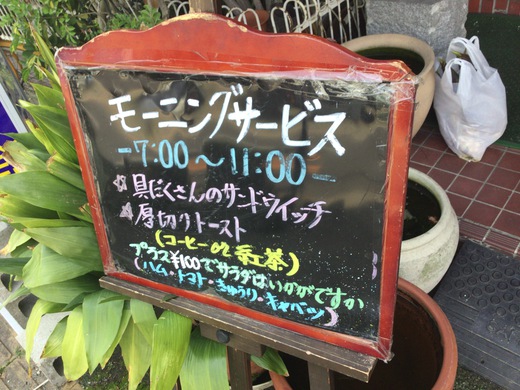 モーニングサービス
-7:00～11:00-
☆具だくさんのサンドウィッチ
☆厚切りトースト
(コーヒー or 紅茶)
プラス¥100でサラダはいかがですか
(ハム・トマト・きゅうり・キャベツ)